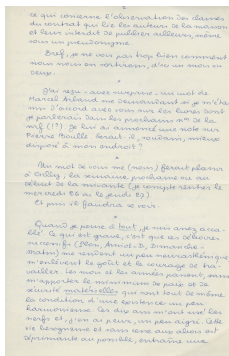 ce qui concerne l'observation des clauses
du contrat qui lie les auteurs de la maison
et leur interdit de publier ailleurs, même
sous un pseudonyme.
Bref, je ne vois pas trop bien comment
nous nous en sortirons, d'ici un mois ou
deux.
J'ai reçu avec surprise un mot de
Marcel Arland me demandant si je m'étais
mis d'accord avec vous sur les livres dont
je parlerais dans les prochains nos de la
nrf (!?) Je lui ai annoncé une note sur
Pierre Boulle. Serait-il, soudain, mieux
disposé à mon endroit ?
Un mot de vous me (nous) ferait plaisir
à la semaine prochaine ou au
début de la suivante (je compte rentrer le
mercredi 26 ou le jeudi 27)
Et puis il faudra se voir.
Quand je pense à tout, je suis assez acca-
blé. Ce qui est grave, c'est que ces déboires
successifs (Plon, Dimanche-
Matin) me rendent un peu neurasthénique
m'enlèvent le goût et le courage de tra-
vailler. Les mois et les années passent, sans
m'apporter le minimum de paix et de
sécurité matérielle qui sont tout de même
la condition d'une existence un peu
harmonieuse. Ces dix ans m'ont usé les
nerfs et, j'en ai peur, un peu aigri. Cette
vie besogneuse et sans rêve aux alois est
déprimante au possible, entraîne une